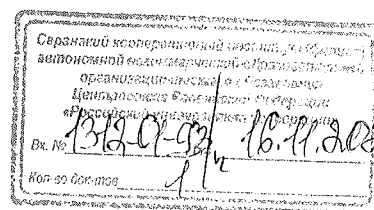 Саранский кооперативный институт (филиал)
автономной некоммерческой образовательной
организации высшего образования
Центросоюза Российской Федерации
«Российский университет кооперации»
Вх. № 1312-01-93/ 16.11.202
Кол-во док-тов 1